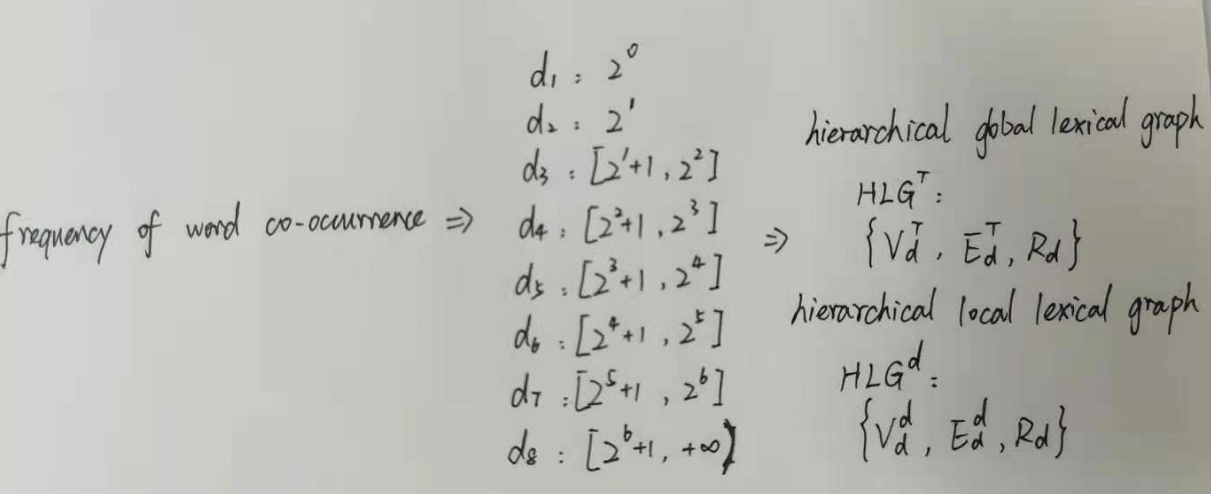 frequency of word co-occurrence ⇒
d₁ : 2⁰
d₂ : 2¹
d₃ : [2¹+1, 2²]
d₄ : [2²+1, 2³]
d₅ : [2³+1, 2⁴]
d₆ : [2⁴+1, 2⁵]
d₇ : [2⁵+1, 2⁶]
d₈ : [2⁶+1, +∞)
⇒
hierarchical global lexical graph
HLGᵀ :
{V_d^T, E_d^T, R_d}
hierarchical local lexical graph
HLG^d :
{V_d^d, E_d^d, R_d}